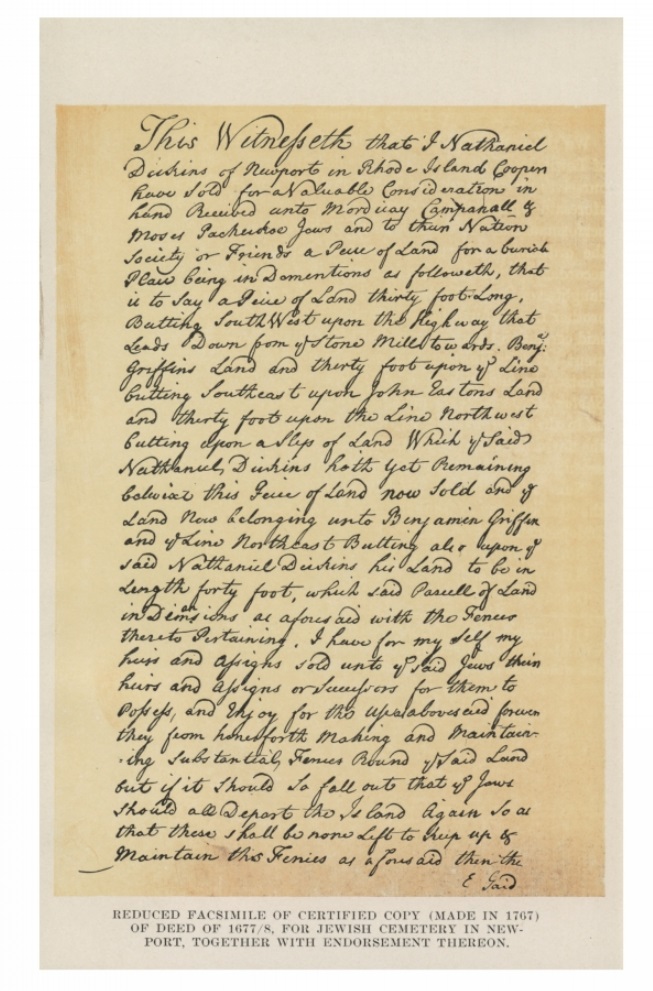 This Witnesseth that I Nathaniel
Dickins of Newport in Rhode Island Cooper
have Sold for a Valuable Consideration in
hand Received unto Mordicay Campanall &
Moses Packeckoe Jews and to their Nation
Society or Friends a Peice of Land for a burial
Place being in Dementions as followeth, that
is to Say a Peice of Land thirty foot Long,
Butting SouthWest upon the Highway that
Leads Down from ye Stone Mill towards Benja:
Griffins Land and thirty foot upon ye Line
butting Southeast upon John Eastons Land
and thirty foot upon the Line Northwest
butting upon a Slip of Land Which ye Said
Nathaniel Dickins hath yet Remaining
betwixt this Peice of Land now Sold and ye
Land Now belonging unto Benjamin Griffin
and ye Line Northeast Butting also upon ye
said Nathaniel Dickins his Land to be in
Length forty foot, which said Parcell of Land
in Dimensions as aforesaid with the Fences
thereto Pertaining, I have for my Self my
heirs and assigns sold unto ye said Jews their
heirs and assigns or Successors for them to
Possess, and Enjoy for the abovesaid forever
they from henceforth Making and Maintain-
-ing Substantial Fences Round ye Said Land
but if it Should So fall out that ye Jews
Should all Depart the Island Again So as
that there shall be none Left to keep up &
Maintain the Fences as aforesaid then the
Said
REDUCED FACSIMILE OF CERTIFIED COPY (MADE IN 1767)
OF DEED OF 1677/8, FOR JEWISH CEMETERY IN NEW-
PORT, TOGETHER WITH ENDORSEMENT THEREON.